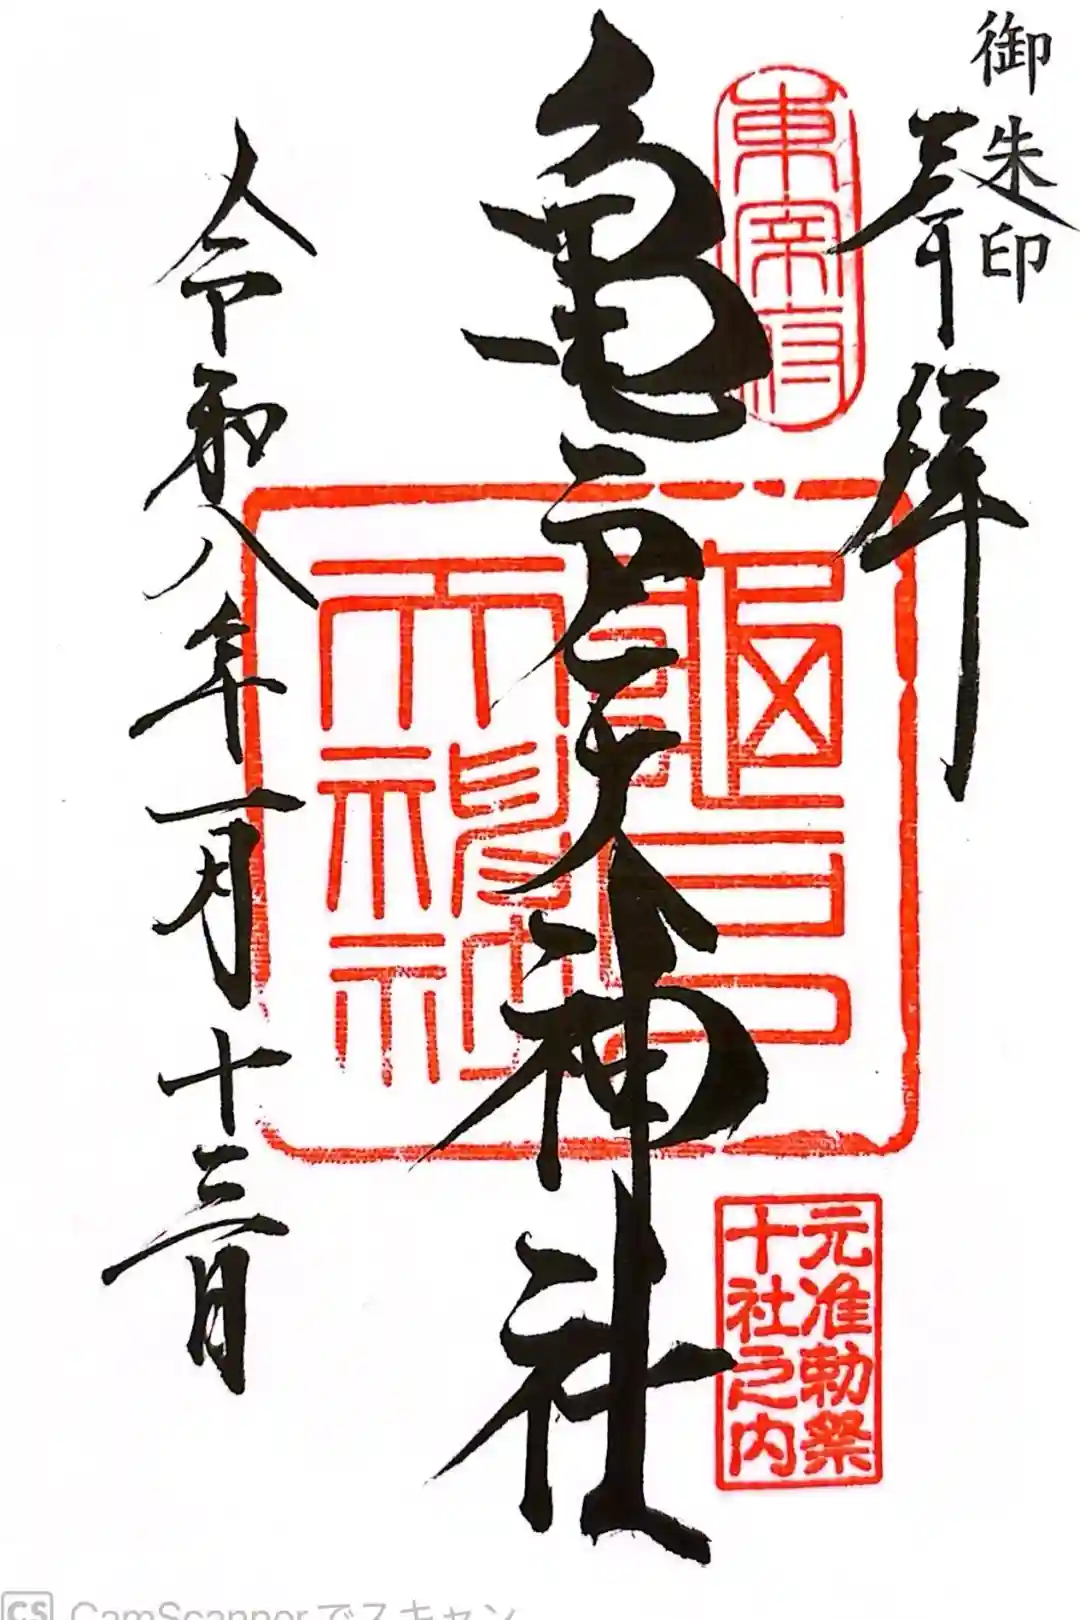 御朱印
奉拝
東京府
亀戸天神社
亀戸
天神社
元准勅祭
十社之内
令和八年一月十三日
CS CamScannerでスキャン